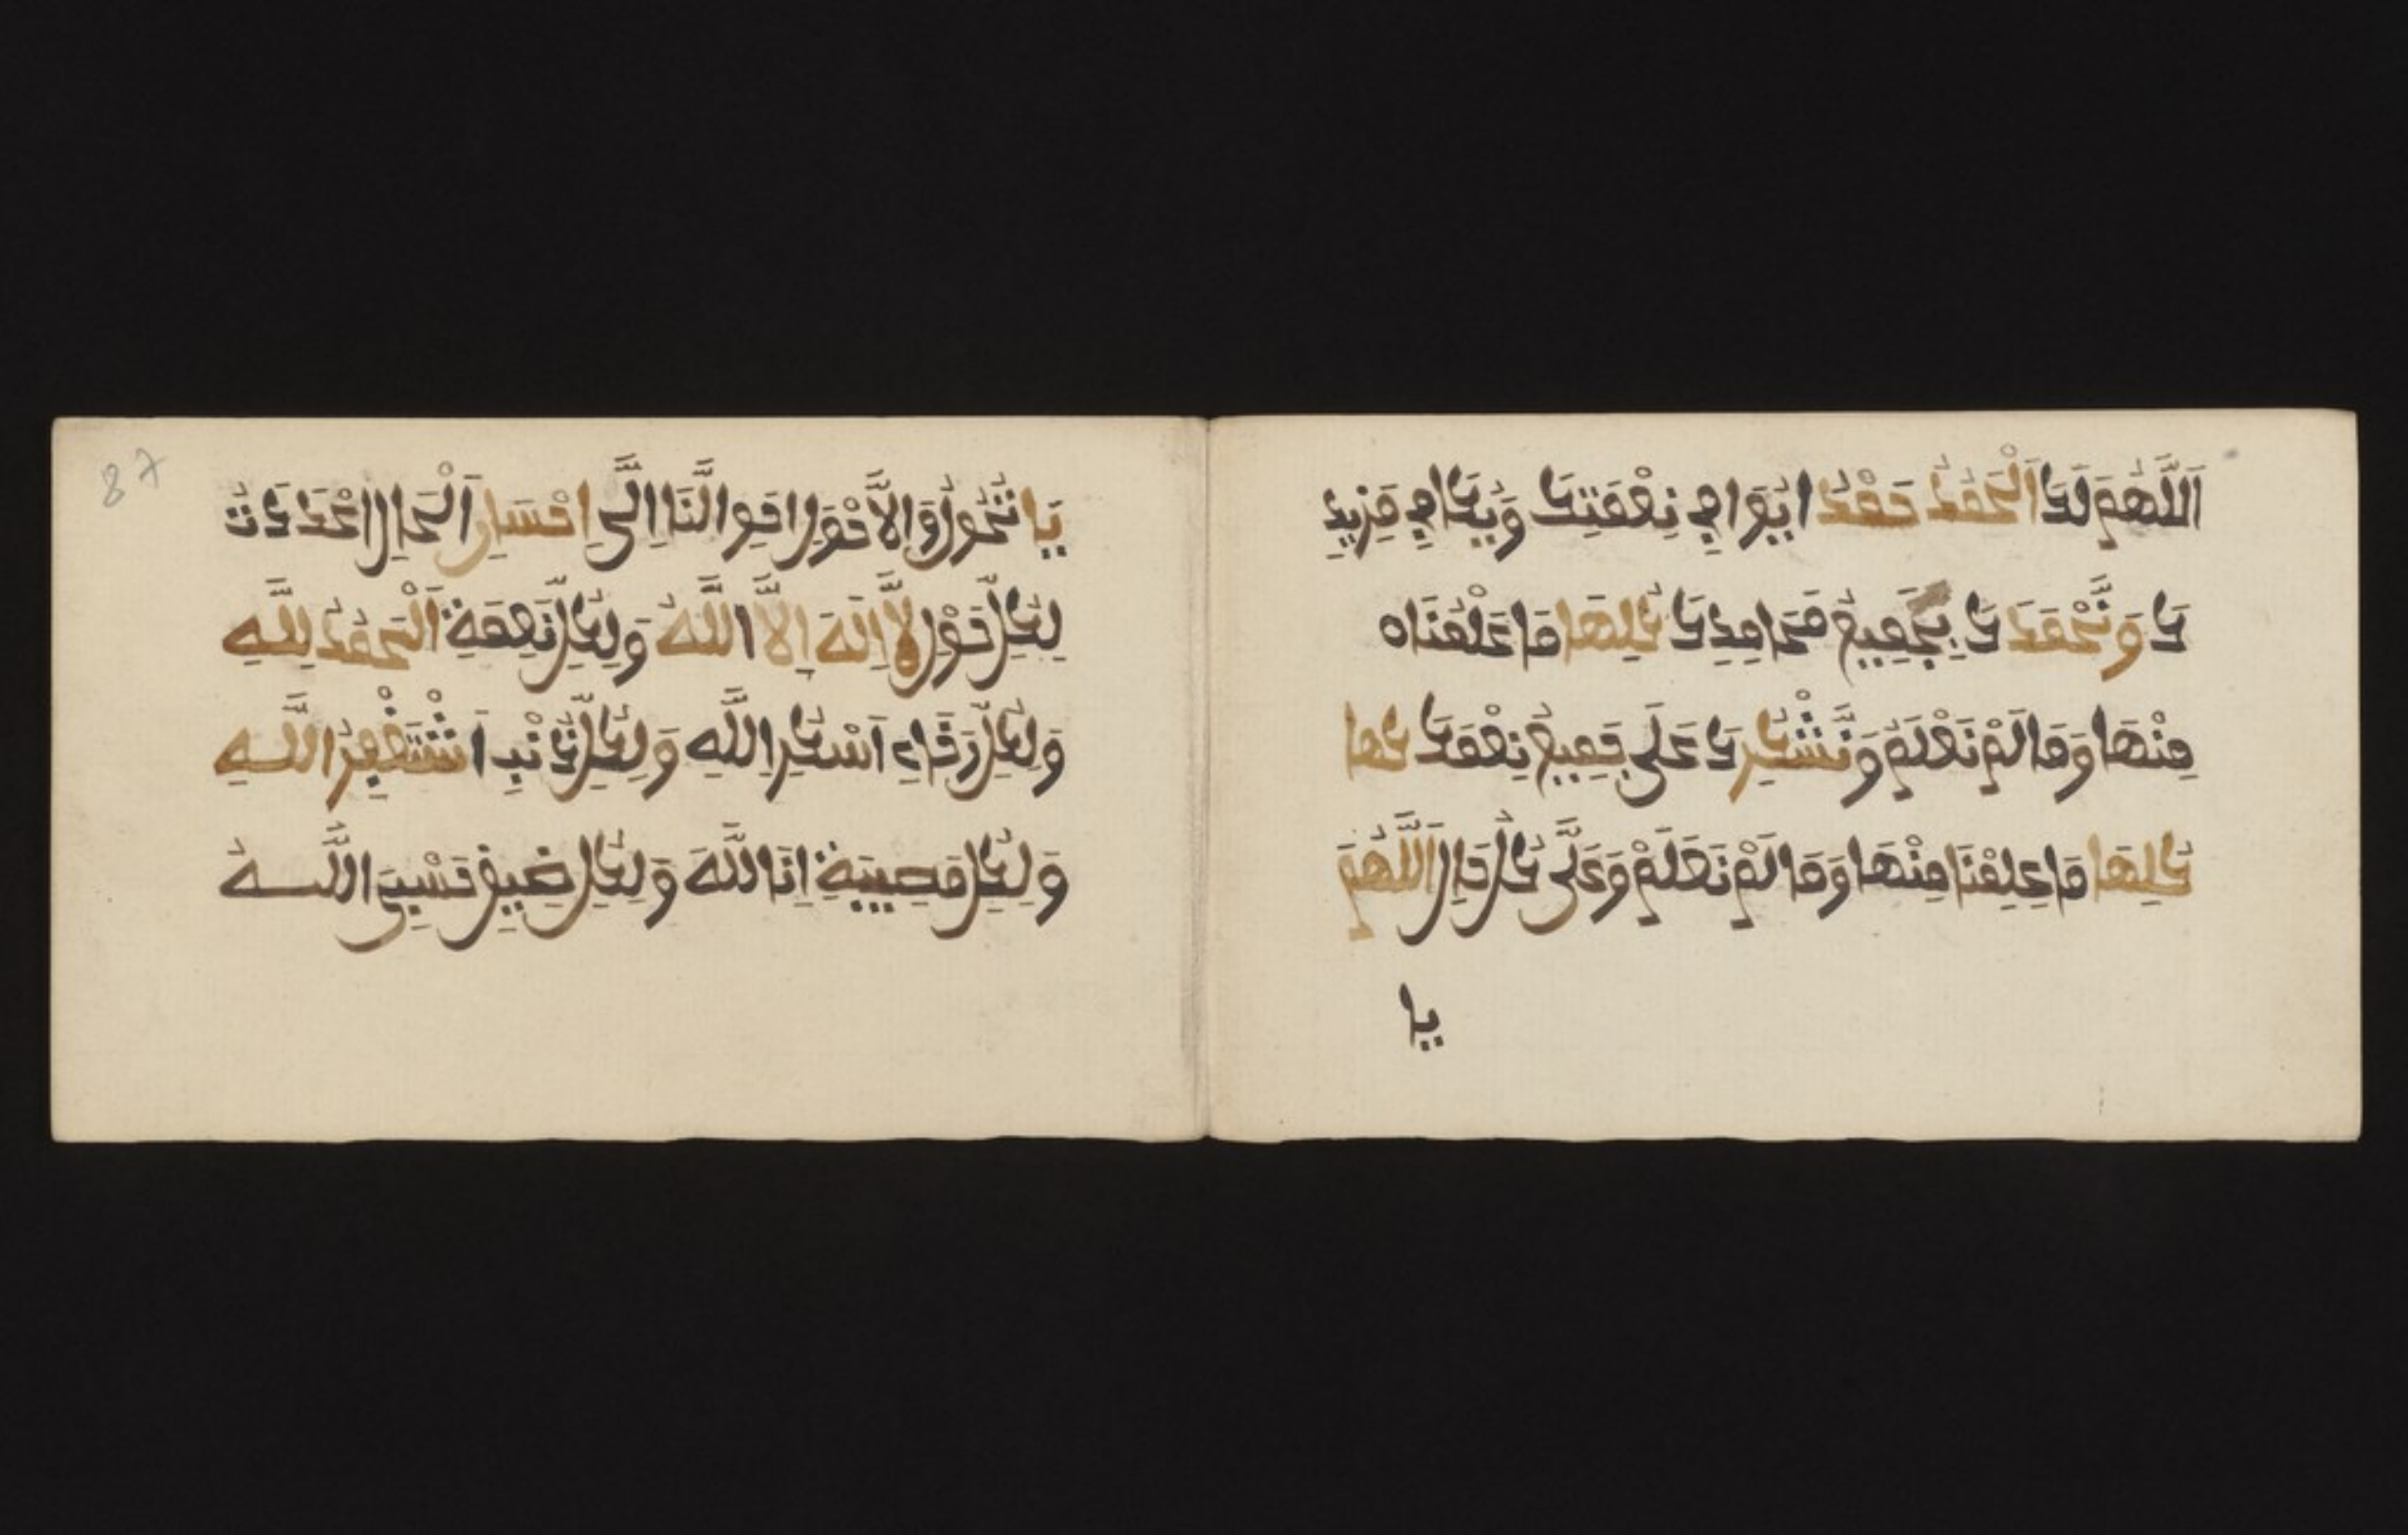 اَللَّهُمَ لَكَ اَلْحَمْدُ حَمْدُ ايُوَافِي نِعْمَتِكَ وَيُكَافِي مَزِيدِ
كَ وَنَّحْمَدُ كَ بِجَمِيعِ مَحَامِدِكَ كُلِهَا مَا عَلِمْنَاه
مِنْهَا وَمَا لَمْ نَعْلَمْ وَنَّشْكُرِ كَ عَلَى جَمِيعِ نِعْمَكَ كها
كُلِهَا مَا عِلِمْنَا مِنْهَا وَمَا لَمْ نَعْلَمْ وَعَلَى كُلِ حَالِ اَللَّهُمَ
يا
يَا مُحَوِلُ وَالاَّحْوَلِ احَوِالَنَا اِلَى اَحْسَنِ اَلْحَالِ اعْدَدَتُ
لِكُلِّ حَوْلِ لاَّ اِلَهَ اِلاَّ اللَّهُ وَلِكُلِ نَعِمَةِ اَلْحَمْدُ لِلَّهِ
وَلِكُلِّ رَخَاءِ اَشْكُرِ اللَّهِ وَلِكُلِّ ذَنْبِ اَسْتَغْفِرُ اللَّهِ
وَلِكُلِ مَصِيبَةِ اِنَا لِلَّهِ وَلِكُلِ ضِيقِ حَسْبِيَ اللَّهُ
87